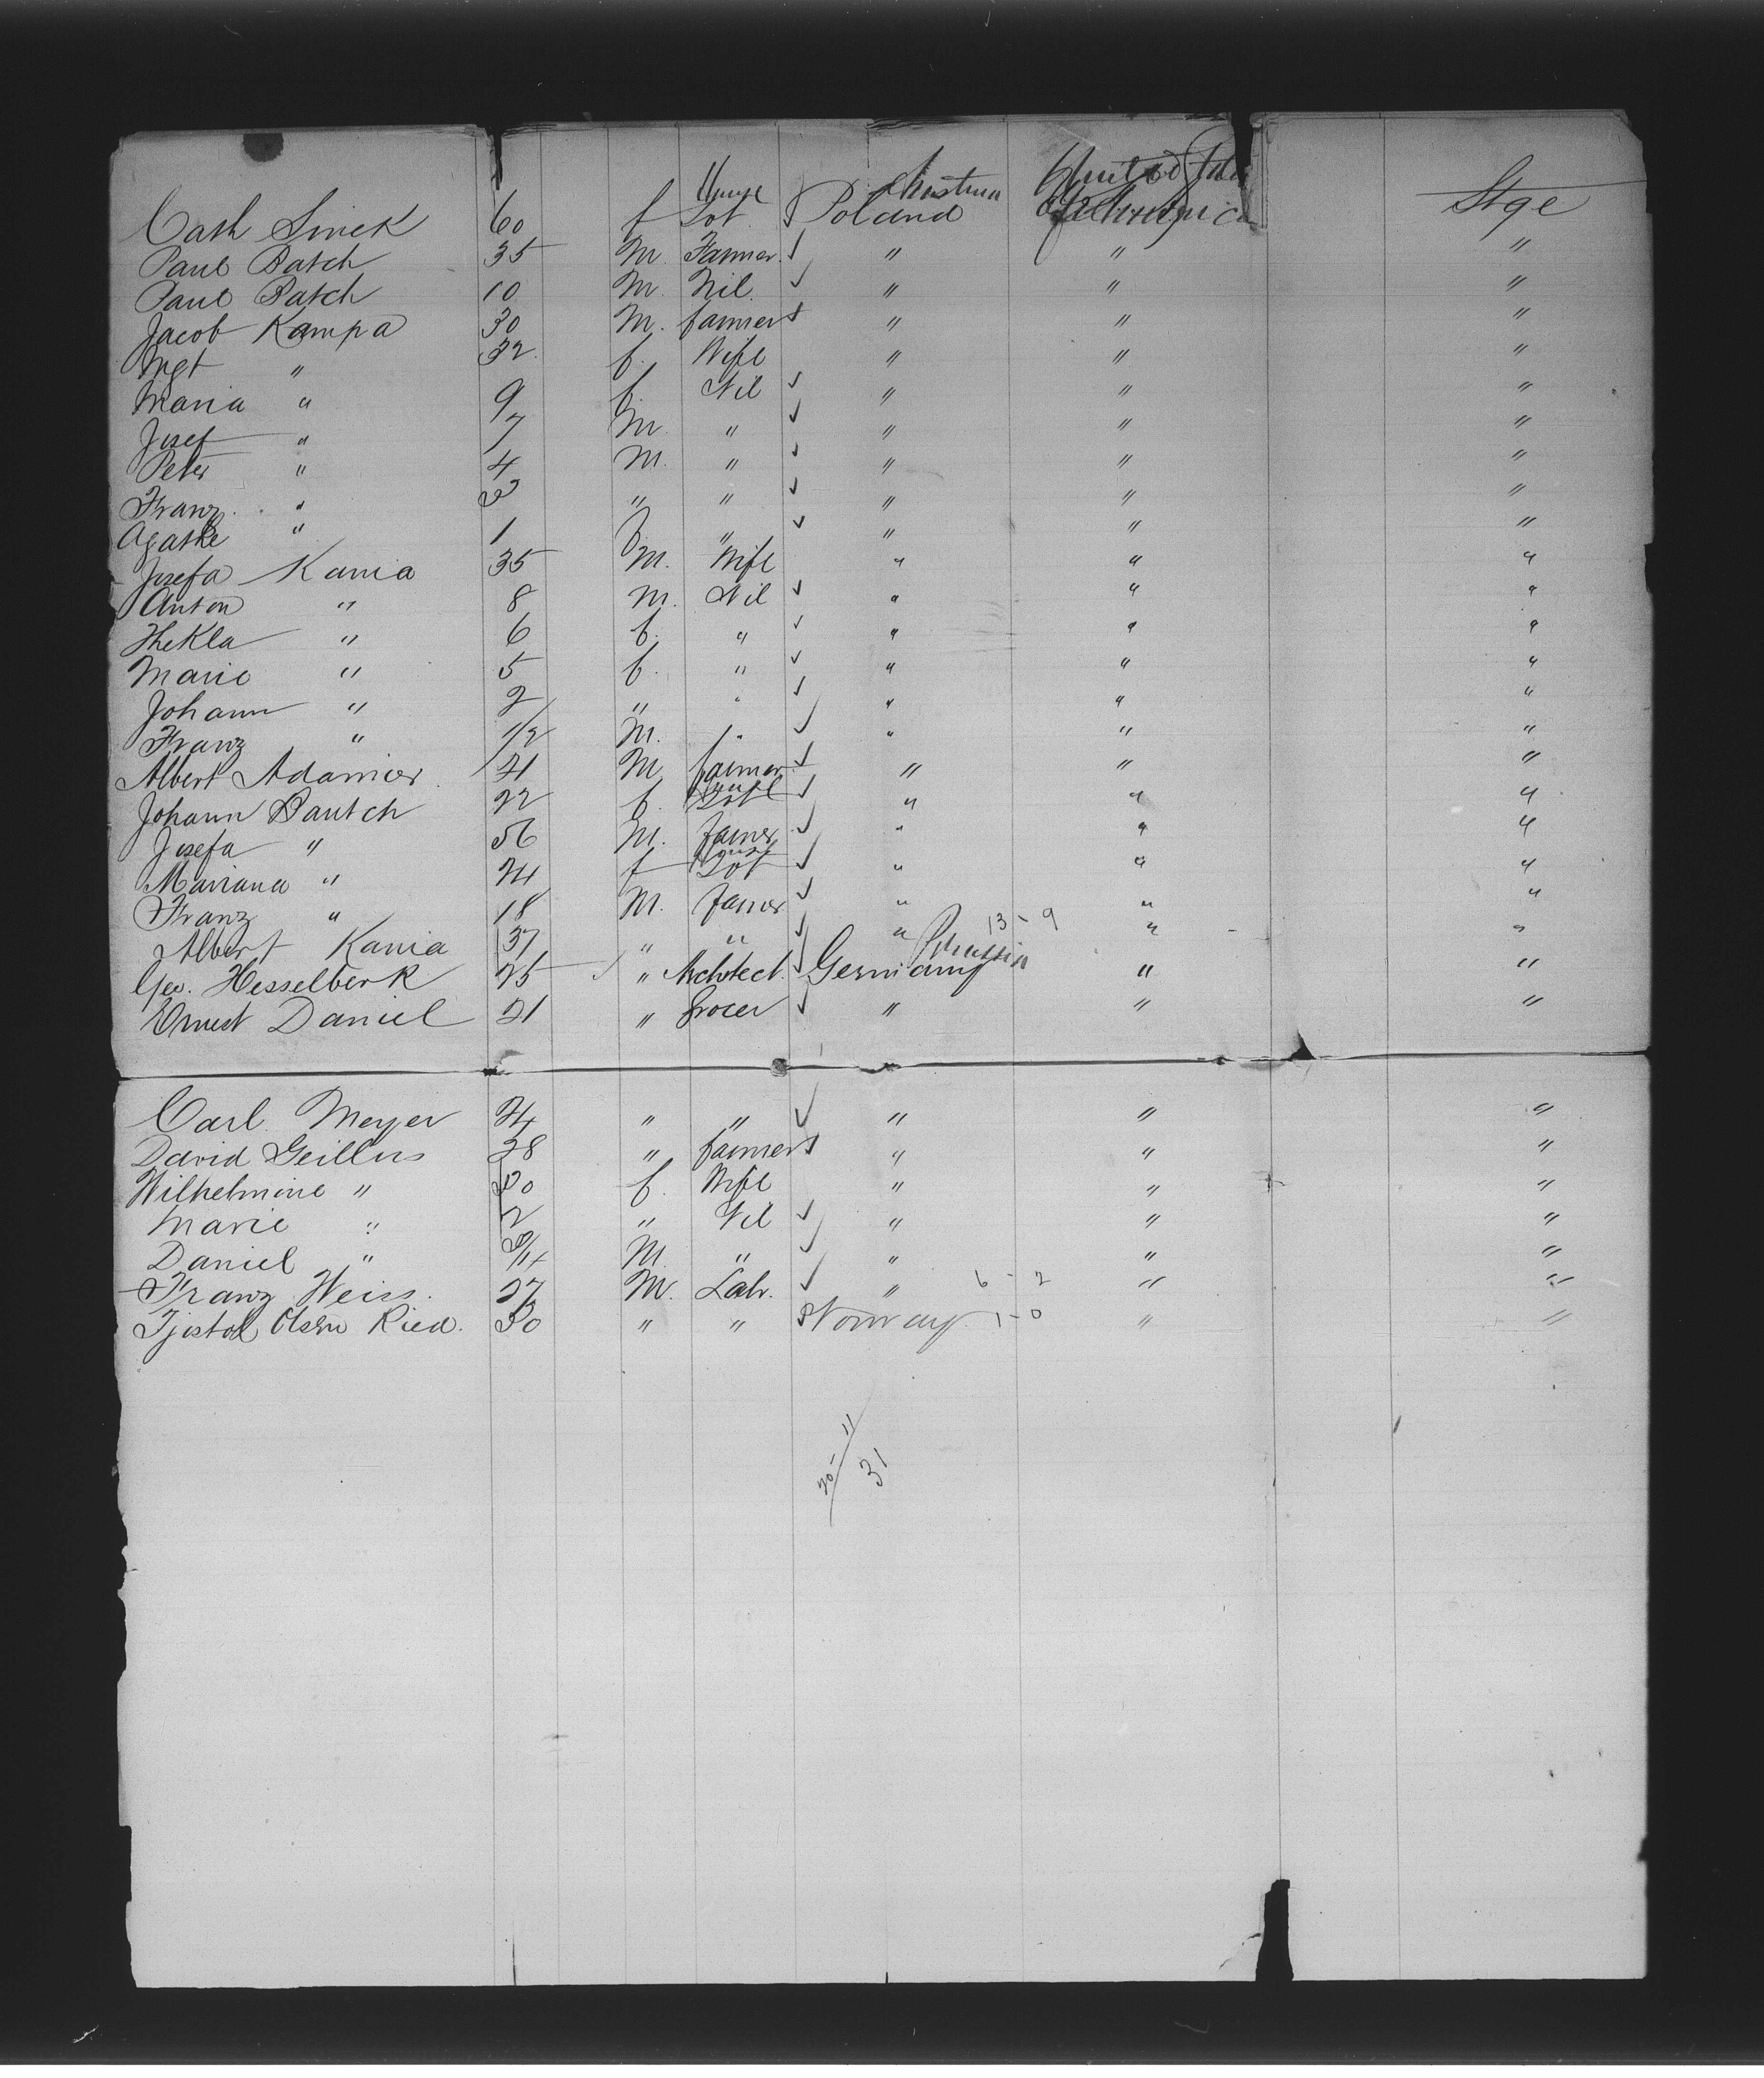 House Austrian United States
Cath Sinek 60 f Lot Poland of America Stge
Paul Batch 35 M. Farmer " " "
Paul Batch 10 M. Nil " " "
Jacob Kampa 30 M. farmer " " "
Mgt " 32 f. Wife " " "
Maria " 9 f. Nil " " "
Josef " 7 M. " " " "
Peter " 4 M. " " " "
Franz " 3 " " " " "
Agathe " 1 f " " " "
Josefa Kania 35 M. Wife " " "
Anton " 8 M. Nil " " "
Thekla " 6 f. " " " "
Marie " 5 f. " " " "
Johann " 2 " " " " "
Franz " 1/2 M. " " " "
Albert 21 M farmer " " "
House
Johann Bautch 22 f. Lot " " "
Josefa " 56 M. Farmer " " "
House
Mariana " 24 f Lot " " "
Franz " 18 M. Farmer " " "
13 - 9
Albert Kania 37 " " " " "
Prussia
Geo. Hesselberk 25 " Architect. Germany " "
Ernest Daniel 21 " Grocer " " "
Carl Meyer 24 " " " " "
David Geillus 28 " farmer " " "
Wilhelmine " 30 f. Wife " " "
Marie " 2 " Nil " " "
Daniel " M. " " " "
Franz Weiss. 27 M. Lab. " 6 - 2 " "
Tjostol Olsen Ried. 30 " " Norway 1 - 0 " "
20 - 11
31